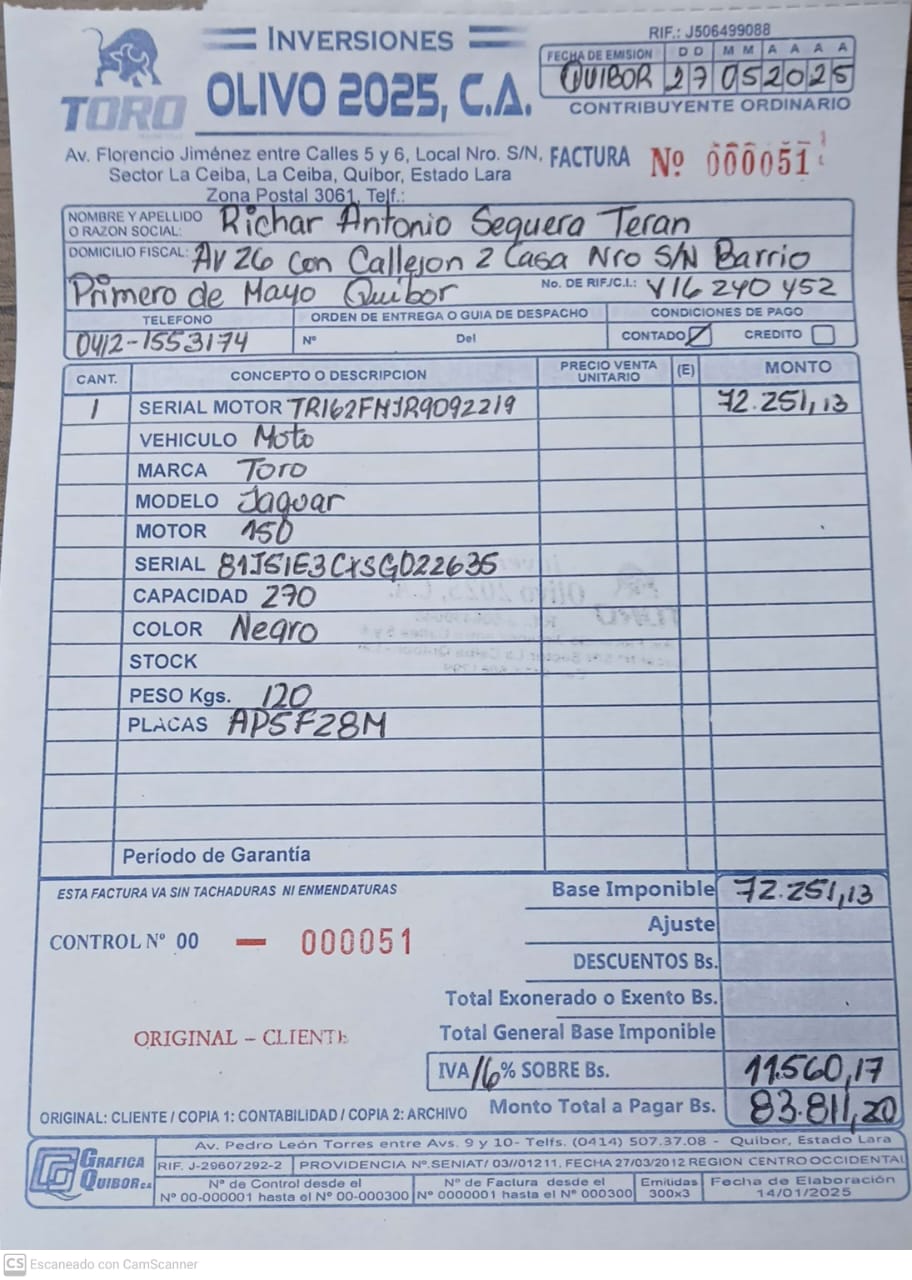 TORO
INVERSIONES
OLIVO 2025, C.A.
RIF.: J506499088
FECHA DE EMISIÓN D D M M A A A A
QUIBOR 27 05 2025
CONTRIBUYENTE ORDINARIO
Av. Florencio Jiménez entre Calles 5 y 6, Local Nro. S/N,
Sector La Ceiba, La Ceiba, Quíbor, Estado Lara
Zona Postal 3061, Telf.:
FACTURA Nº 000051
NOMBRE Y APELLIDO O RAZON SOCIAL: Richar Antonio Sequera Teran
DOMICILIO FISCAL: AV 26 con Callejon 2 Casa Nro S/N Barrio
Primero de Mayo Quibor No. DE RIF./C.I.: V16 240 452
TELEFONO ORDEN DE ENTREGA O GUIA DE DESPACHO CONDICIONES DE PAGO
0412-1553174 Nº Del CONTADO CREDITO
CANT. CONCEPTO O DESCRIPCION PRECIO VENTA UNITARIO (E) MONTO
1 SERIAL MOTOR TR162FMJR9092219 72.251,13
VEHICULO Moto
MARCA Toro
MODELO Jaguar
MOTOR 150
SERIAL
CAPACIDAD 270
COLOR Negro
STOCK
PESO Kgs. 120
PLACAS AP5F28M
Período de Garantía
ESTA FACTURA VA SIN TACHADURAS NI ENMENDATURAS
Base Imponible 72.251,13
Ajuste
CONTROL Nº 00 — 000051
DESCUENTOS Bs.
Total Exonerado o Exento Bs.
ORIGINAL – CLIENTE
Total General Base Imponible
IVA 16% SOBRE Bs. 11.560,17
ORIGINAL: CLIENTE / COPIA 1: CONTABILIDAD / COPIA 2: ARCHIVO
Monto Total a Pagar Bs. 83.811,20
GRAFICA QUIBOR C.A
Av. Pedro León Torres entre Avs. 9 y 10- Telfs. (0414) 507.37.08 - Quibor, Estado Lara
RIF. J-29607292-2 PROVIDENCIA Nº.SENIAT/ 03//01211, FECHA 27/03/2012 REGION CENTRO OCCIDENTAL
Nº de Control desde el Nº de Factura desde el Emitidas Fecha de Elaboración
Nº 00-000001 hasta el Nº 00-000300 Nº 0000001 hasta el Nº 000300 300x3 14/01/2025
CS Escaneado con CamScanner